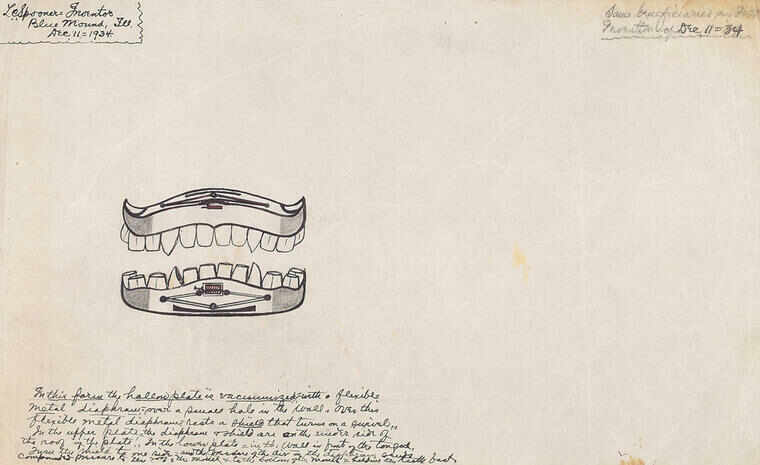 L.C. Spooner = Inventor
Blue Mound, Ill
Dec 11 = 1934
Same beneficiaries
Dec 11 = 34
In this form the hollow plate is vacuumized with a flexible
metal diaphram over a small hole in the wall. Over this
flexible metal diaphram rests a shield that turns on a swivel.
In the upper plate, the diaphram & shield are on the under side of
the roof of the plate. In the lower plate = in the wall in front of the tongue
Turn the shield to one side = and the pressure of the air on the diaphram
compounds pressure to